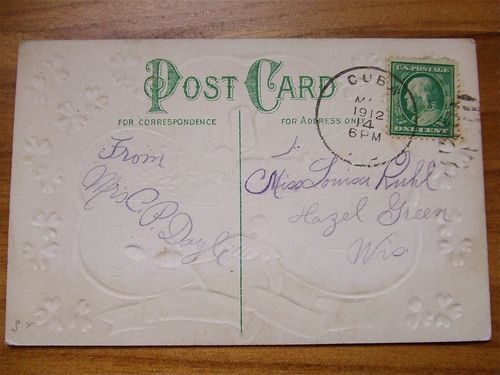 POST CARD
FOR CORRESPONDENCE
FOR ADDRESS ON
CUBA
1912
14
6 PM
U.S. POSTAGE
ONE CENT
From
Mrs C. P. Dayle
Miss Louisa Ruhl
Hazel Green
Wis